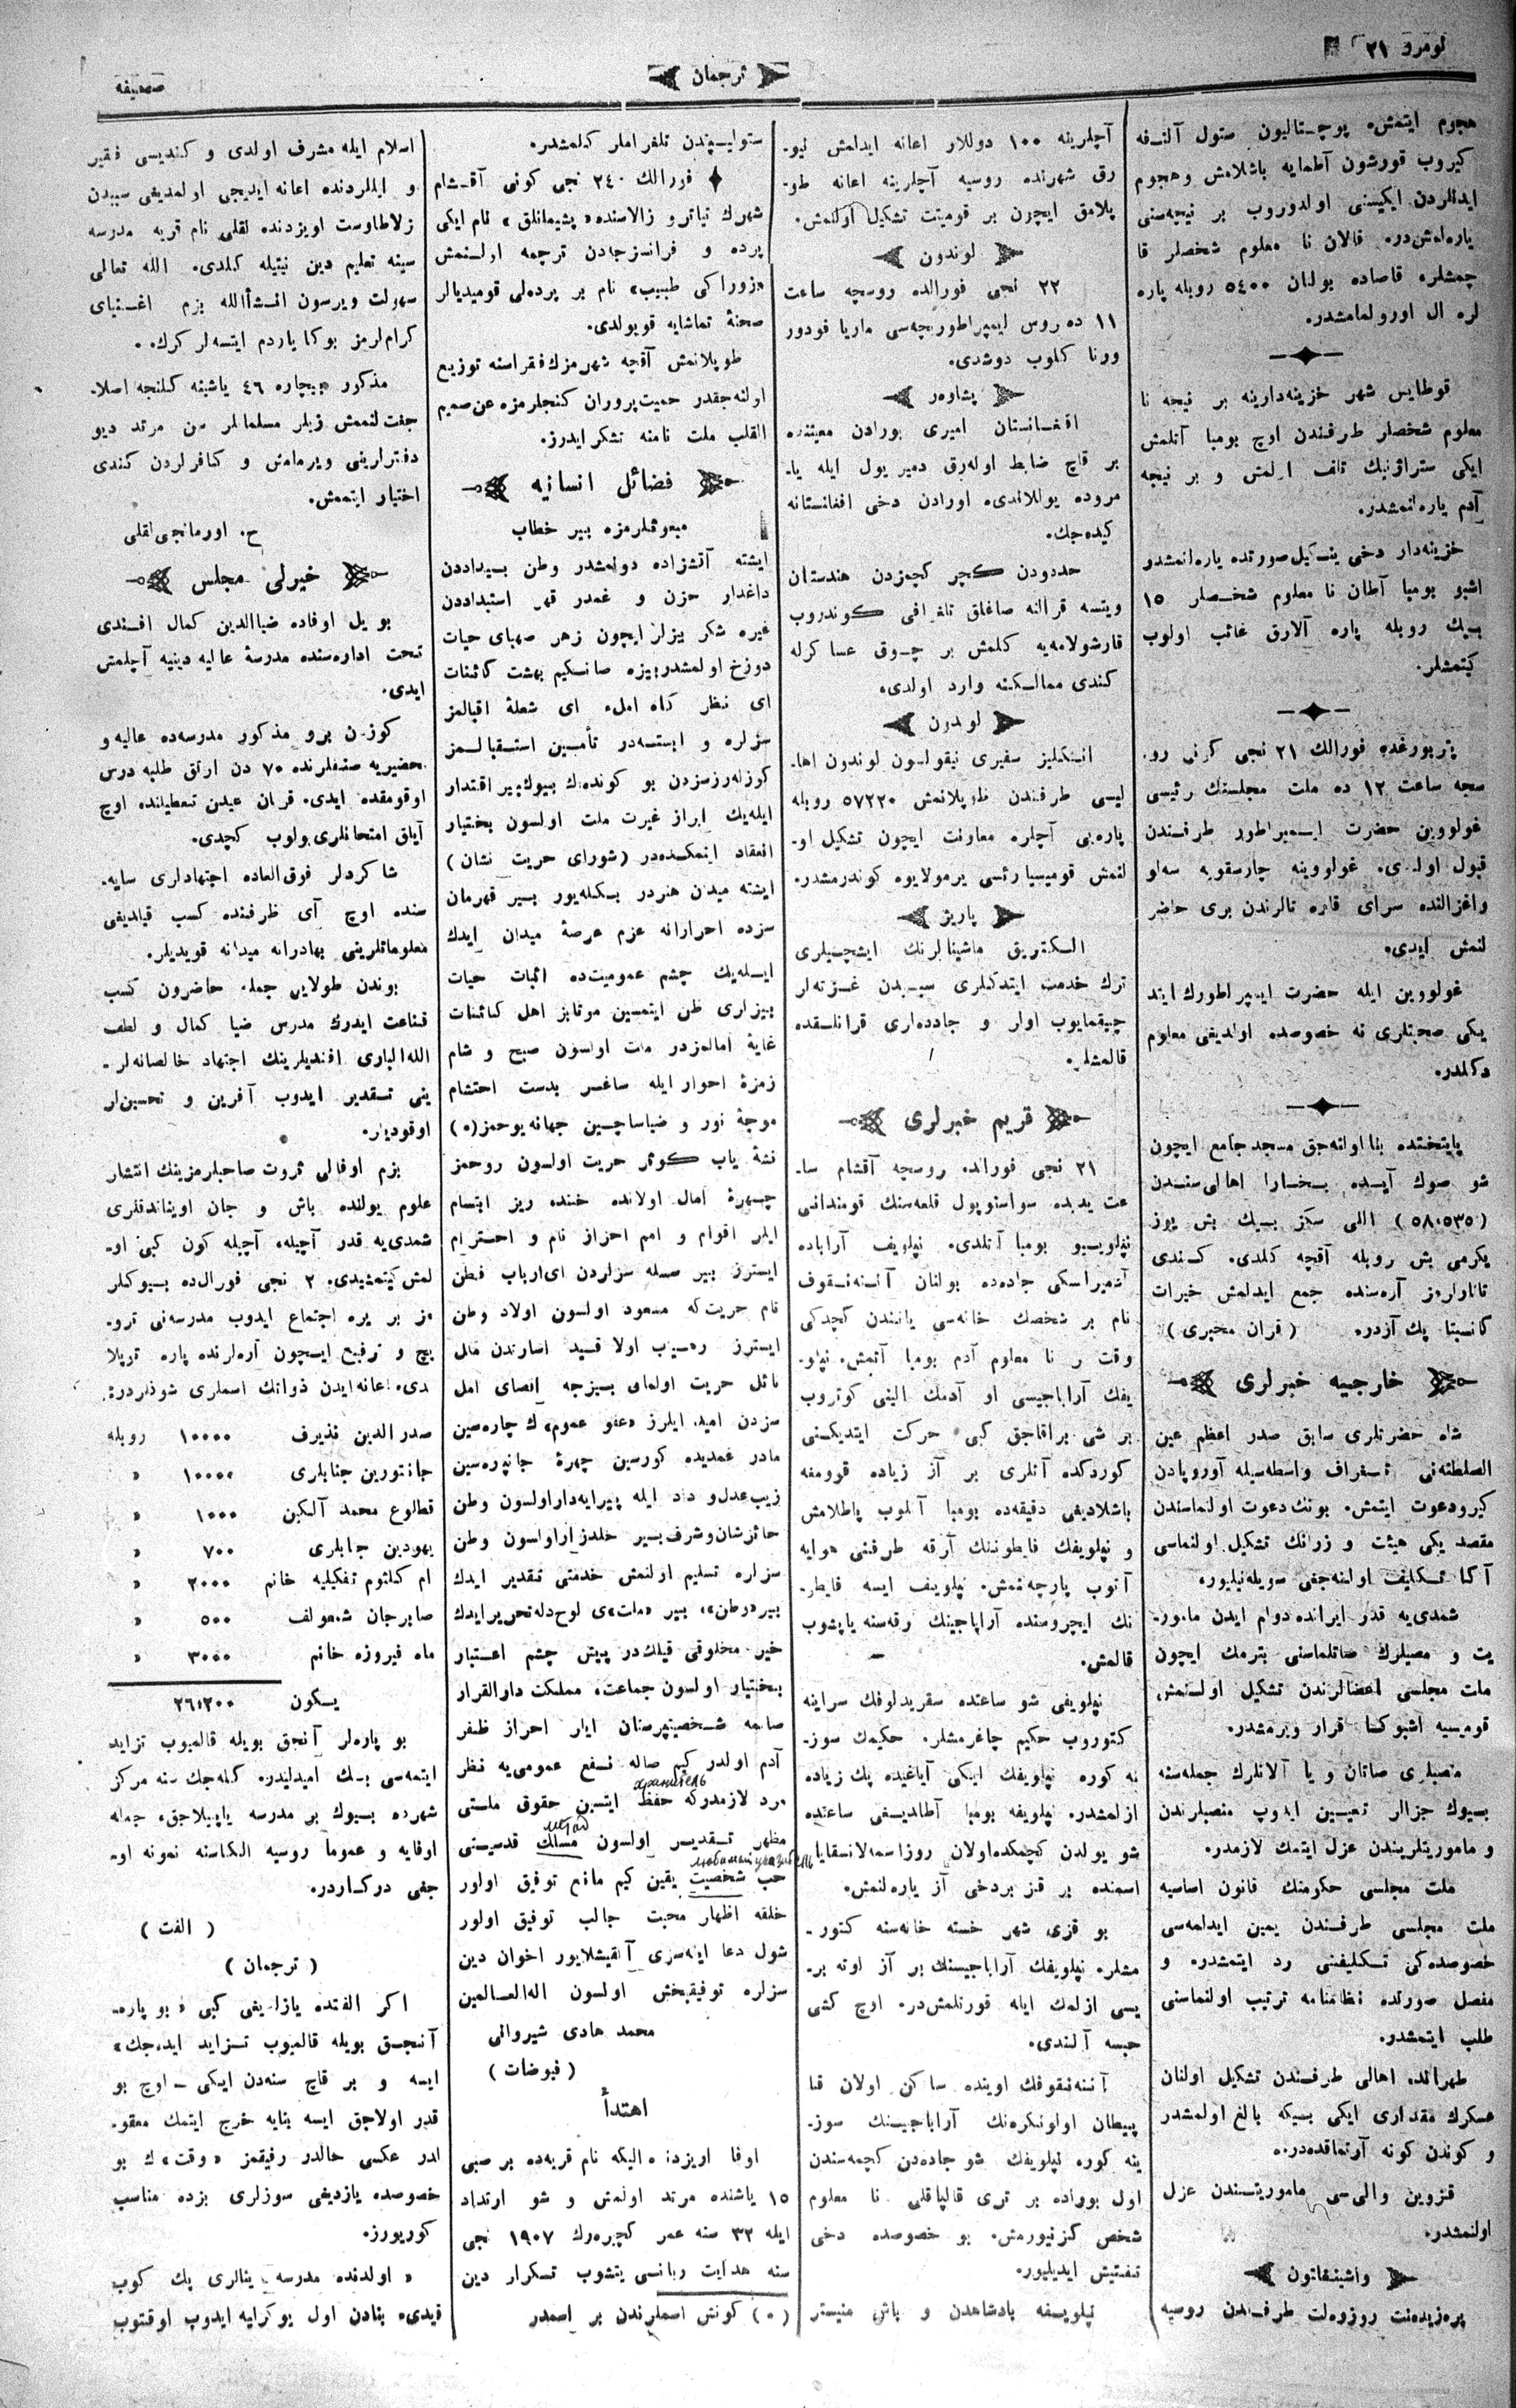 نومرو ٢١
ترجمان
صحيفه
هجوم ايتمش، پوچتاليون ستول آلنده
كيروب قورشون آطمايه باشلامش وهجوم
ايدنلردن ايكيسنى اولدوروب بر نيچه‌سنى
ياره‌لمش‌در. قالان نا معلوم شخصلر قا
چمشلر، قاصاده بولنان ٥٤٠٠ روبله پاره
لره ال اورولمامشدر.
قوطايس شهر خزينه‌دارينه بر نيچه نا
معلوم شخصلر طرفندن اوچ بومبا آتلمش
ايكى ستراژنيك تلف اولمش و بر نيچه
آدم ياره‌لنمشدر.
خزينه‌دار دخى ينكيل صورتده ياره‌لنمشدر
اشبو بومبا آطان نا معلوم شخصلر ١٥
بيك روبله پاره آلارق غائب اولوب
كيتمشلر.
پتربورغده فورالك ٢١ نجى كونى رو-
سجه ساعت ١٢ ده ملت مجلسنك رئيسى
غولووين حضرت ايمپراطور طرفندن
قبول اولندى. غولووينه چارسقويه سه‌لو
واغزالنده سراى قاره تالرندن برى حاضر
لنمش ايدى.
غولووين ايله حضرت ايمپراطورك ايتد
يكى صحبتلرى نه خصوصده اولديغى معلوم
دكلدر.
پايتختده بنا اولنه‌جق مسجد جامع ايچون
شو صوك آيده بخارا اهالى‌سندن
(٥٨،٥٣٥) اللى سكز بيك بش يوز
يكرمى بش روبله آقچه كلدى. كندى
تاتارلرمز آره‌سنده جمع ايدلمش خيرات
كا نسبتا پك آزدر. (قران مخبرى)
خارجيه خبرلرى
شاه حضرتلرى سابق صدر اعظم عين
السلطنه‌نى تلغراف واسطه‌سيله آوروپادن
كيرو دعوت ايتمش. بونك دعوت اولنماسندن
مقصد يكى هيئت و زرانك تشكيل اولنماسى
آكا تكليف اولنه‌جغى سويله‌نيلور.
شمدى‌يه قدر ايرانده دوام ايدن مامور-
يت و منصبلرك صاتلماسنى بترمك ايچون
ملت مجلسى اعضالرندن تشكيل اولنمش
قوميسيه اشبوكا قرار ويرمشدر.
منصبلرى صاتان و يا آلانلرك جمله‌سنه
بيوك جزالر تعيين ايدوب منصبلرندن
و ماموريتلريندن عزل ايتمك لازمدر.
ملت مجلسى حكومتك قانون اساسيه
ملت مجلسى طرفندن يمين ايدلمه‌سى
خصوصده‌كى تكليفنى رد ايتمشدر. و
مفصل صورتده نظامنامه ترتيب اولنماسنى
طلب ايتمشدر.
طهرانده اهالى طرفندن تشكيل اولنان
عسكرك مقدارى ايكى بيكه بالغ اولمشدر
و كوندن كونه آرتماقده‌در.
قزوين والى‌سى ماموريتندن عزل
اولنمشدر.
واشينغتون
پره‌زيده‌نت روزوه‌لت طرفندن روسيه
آچلرينه ١٠٠ دوللار اعانه ايدلمش نيو-
رق شهرنده روسيه آچلرينه اعانه طو-
پلامق ايچون بر قوميتت تشكيل اولنمش.
لوندون
٢٢ نجى فورالده روسچه ساعت
١١ ده روس ايمپراطوريچه‌سى ماريا فودور
وونا كلوب دوشدى.
پشاوهر
افغانستان اميرى بورادن معيتنده
بر قاچ ضابط اوله‌رق دمير يول ايله يا-
مروده يوللاندى، اورادن دخى افغانستانه
كيده‌جك.
حدودن كچر كچمزدن هندستان
ويتسه قرالنه صاغلق تلغرافى كوندروب
قارشولامه‌يه كلمش بر چوق عساكرله
كندى ممالكنه وارد اولدى.
لوندون
انكليز سفيرى نيقولسون لوندون اها-
ليسى طرفندن طوپلانمش ٥٧٢٢٠ روبله
پاره‌يى آچلره معاونت ايچون تشكيل او-
لنمش قوميسيا رئسى يرمولايوه كوندرمشدر.
پاريژ
الكتريق ماشينالرنك ايشچيلرى
ترك خدمت ايتدكلرى سببدن غزته‌لر
چيقمايوب اولر و جاده‌لرى قرانلقده
قالمشلر.
قريم خبرلرى
٢١ نجى فورالده روسچه آقشام سا-
عت يديده سواستوپول قلعه‌سنك قوماندانى
نپلويه بومبا آتلدى. نپلويف آراباده
آدميراسكى جاده‌ده بولنان آننه‌نقوف
نام بر شخصك خانه‌سى ياننندن كچدكى
وقت بر نا معلوم آدم بومبا آتمش. نپلو-
يفك آراباجيسى او آدمك الينى كوتروب
بر شى براقاجق كبى حركت ايتديكنى
كوردكده آتلرى بر آز زياده قوومغه
باشلاديغى دقيقه‌ده بومبا آتلوب پاطلامش
و نپلويفك فايطوننك آرقه طرفنى هوايه
آتوب پارچه‌لمش. نپلويف ايسه فايطو-
نك ايچروسنده آراباجينك رقه‌سنه ياپشوب
قالمش.
نپلويفى شو ساعتده سقريدلوفك سراينه
كتوروب حكيم چاغرمشلر. حكيمك سوز-
نه كوره نپلويفك ايكى آياغيده پك زياده
ازلمشدر. نپلويفه بومبا آطالديغى ساعتده
شو يولدن كچمكده‌اولان روزا سمه‌لانسقايا
اسمنده بر قز بر دخى آز ياره‌لنمش.
بو قزى شهر خسته خانه‌سنه كتور-
مشلر. نپلويفك آراباجيسنك بر آز اوته بر-
يسى ازلمك ايله قورتلمش‌در. اوچ كشى
حبسه آلندى.
آننه‌نقوفك اوينده ساكن اولان قا
پيطان اولونكره‌نك آراباجيسنك سوز-
ينه كوره نپلويفك شو جاده‌دن كچمه‌سندن
اول بوراده بر ترى قالپاقلى نا معلوم
شخص كزنيورمش. بو خصوصده دخى
تفتيش ايديليور.
نپلويفه پادشاهدن و باش منيستر
ستوليپيندن تلغرامار كلمشدر.
فورالك ٢٤٠ نجى كونى آقشام
شهرك تياترو زالاسنده «پشيمانلق» نام ايكى
پرده و فرانسزجادن ترجمه اولنمش
«زوراكى طبيب» نام بر پرده‌لى قوميديالر
صحنهٔ تماشايه قويولدى.
طوپلانمش آقچه شهرمزك فقراسنه توزيع
اولنه‌جقدر حميت‌پروران كنجلرمزه عن صميم
القلب ملت نامنه تشكر ايدرز.
فضائل انسانيه
مبعوثلرمزه بير خطاب
ايشته آتشزاده دونمشدر وطن بيداددن
داغدار حزن و غمدر قهر استبداددن
غيره شكر بزلر ايچون زهر صهباى حيات
دوزخ اولمشدر بيزه صانكيم بهشت كائنات
اى نظر كاه امل، اى شعلهٔ اقبالمز
سزلره و ابسته‌در تأمين استقبالمز
كوزله‌رزسزدن بو كونده‌ك بيوك بير اقتدار
ايله‌يك ابراز غيرت ملت اولسون بختيار
انعقاد ايتمكده‌در (شوراى حريت نشان)
ايشته ميدن هنردر بكله‌يور بير قهرمان
سزده احرارانه عزم عرصهٔ ميدان ايدك
ايله‌يك چشم عموميت‌ده اثبات حيات
بيزلرى ظن ايتمسين موتايز اهل كائنات
غايهٔ امالمزدر ملت اولسون صبح و شام
زمزهٔ احرار ايله ساغر بدست احتشام
موجهٔ نور و ضياساچسين جهانه يوحمز (٥)
نشئهٔ ياب كوثر حريت اولسون روحمز
چهرهٔ امال اولانده خنده ريز ابتسام
ايلر اقوام و امم احراز نام و احترام
ايسترز بير مسئله سزلردن اى ارباب فطن
نام حريت‌كه مسعود اولسون اولاد وطن
نائل حريت اولماى بيزجه اقصاى امل
سزدن اميد ايلرز «عفو عموم»ك چاره‌سين
مادر غمديده كورسين چهرهٔ جانپاره‌سين
زيب عدل و داد ايله پيرايه‌دار اولسون وطن
حائز شان و شرف بير خلدزار اولسون وطن
سزلره تسليم اولنمش خدمتى تقدير ايدك
بير «وطن»، بير «ملت»ى لوح دله تحرير ايدك
خير مخلوقى قيلك‌در پيش چشم اعتبار
بختيار اولسون جماعت، مملكت دارالقرار
صانمه شخصيتپرستان ايلر احراز ظفر
آدم اولدر كيم صاله نفع عمومى‌يه نظر
хранитель
مرد لازمدركه حفظ ايتسين حقوق ملتى
مظهر تقدير اولسون مسلك قدسيتى
حب شخصيت يقين كيم مانع توفيق اولور
خلقه اظهار محبت جالب توفيق اولور
شول دعا ايله‌سزى آلقيشلايور اخوان دين
سزلره توفيقبخش اولسون اله‌العالمين
محمد هادى شيروانى
(فيوضات)
اهتدأ
اوفا اويزدنه اليكه نام قريه‌ده بر صبى
١٥ ياشنده مرتد اولمش و شو ارتداد
ايله ٣٢ سنه عمر كچيره‌رك ١٩٠٧ نجى
سنه هدايت ربانى يتشوب تكرار دين
(٥) كونش اسملرندن بر اسمدر
اسلام ايله مشرف اولدى و كنديسى فقير
و ايللردنده اعانه ايديجى اولمديغى سببدن
زلاطاوست اويزدنده لقلى نام قريه مدرسه
سينه تعليم دين نيتيله كلدى. الله تعالى
سهولت ويرسون انشأالله بزم اغنياى
كرام‌لرمز بوكا ياردم ايتسه‌لر كرك.
مذكور بيچاره ٤٦ ياشينه كلنجه اصلا-
جفت لنممش زيلر مسلمانلر سن مرتد ديو
دفترلرينى ويرمامش و كافرلردن كندى
اختيار ايتممش.
ح. اورمانجى لقلى
خيرلى مجلس
بو يل اوفاده ضياالدين كمال افندى
تحت اداره‌سنده مدرسهٔ عاليه دينيه آچلمش
ايدى.
كوزدن برو مذكور مدرسه‌ده عاليه و
حضيريه صنفلرنده ٧٠ دن ارتق طلبه درس
اوقومقده ايدى. قربان عيدن تعطيلنده اوچ
آيلق امتحانلرى بولوب كچدى.
شاكردلر فوق العاده اجتهادلرى سايه-
سنده اوچ آى ظرفنده كسب قيلديغى
معلوماتلرينى بهادرانه ميدانه قويديلر.
بوندن طولايى جمله حاضرون كسب
قناعت ايدرك مدرس ضيا كمال و لطف
الله البارى افنديلرينك اجتهاد خالصانه‌لر-
ينى تقدير ايدوب آفرين و تحسين‌لر
اوقوديلر.
بزم اوفالى ثروت صاحبلرمزيڭ انتشار
علوم يولنده باش و جان اويناندقلرى
شمدى‌يه قدر آچيله، آچيله كون كبى او-
لمش كيتمشيدى. ٢ نجى فورال‌ده بيوكلر
مز بر يره اجتماع ايدوب مدرسه‌نى ترو-
يج و ترفيع ايچون آره‌لرنده پاره توپلا
دى. اعانه ايدن ذواتك اسملرى شونلردر:
صدرالدين نذيرف ١٠٠٠٠ روبله
جانتورين جنابلرى ١٠٠٠٠ «
قطلوع محمد آلكين ١٠٠٠ «
بهودين جنابلرى ٧٠٠ «
ام كلثوم تفكيليه خانم ٢٠٠٠ «
صابرجان شمعولف ٥٠٠ «
ماه فيروزه خانم ٣٠٠٠ «
يكون ٢٦،٢٠٠
بو پاره‌لر آنجق بويله قالميوب تزايد
ايتمه‌سى پك اميدليدر. كله‌جك سنه مركز
شهرده بيوك بر مدرسه ياپيلاجق، جمله
اوفايه و عموما روسيه الكاسنه نمونه او-
جغى دركاردر.
(الفت)
(ترجمان)
اكر الفتده يازلديغى كبى «بو پاره-
آنجق بويله قالميوب تزايد ايده‌جك»
ايسه و بر قاچ سنه‌دن ايكى ــ اوچ بو
قدر اولاجق ايسه بنايه خرج ايتمك معقو-
لدر عكسى حالدر رفيقمز «وقت»ك بو
خصوصده يازديغى سوزلرى بزده مناسب
كوريورز.
«اولدنده مدرسه بنالرى پك كوب
قيدى، بنادن اول يوكرايه ايدوب اوقتوب